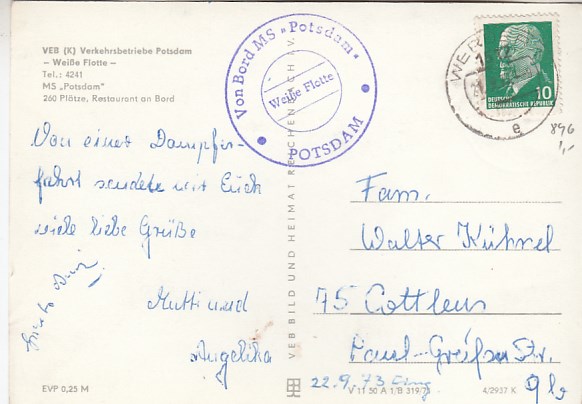 VEB (K) Verkehrsbetriebe Potsdam
– Weiße Flotte –
Tel.: 4241
MS „Potsdam"
260 Plätze, Restaurant an Bord
Von Bord MS „Potsdam"
Weiße Flotte
POTSDAM
WER
DEUTSCHE
DEMOKRATISCHE REPUBLIK
10
e
896
1,-
Von einer Dampfer-
fahrt sendete wir Euch
viele liebe Grüße
Mutti und
Angelika
Fam.
Walter Kühnel
75 Cottbus
Paul-Greifzu Str.
9b
22.9.73
EVP 0,25 M
VEB BILD UND HEIMAT REICHENBACH i. V.
V 11 50 A 1/B 319/73
4/2937 K